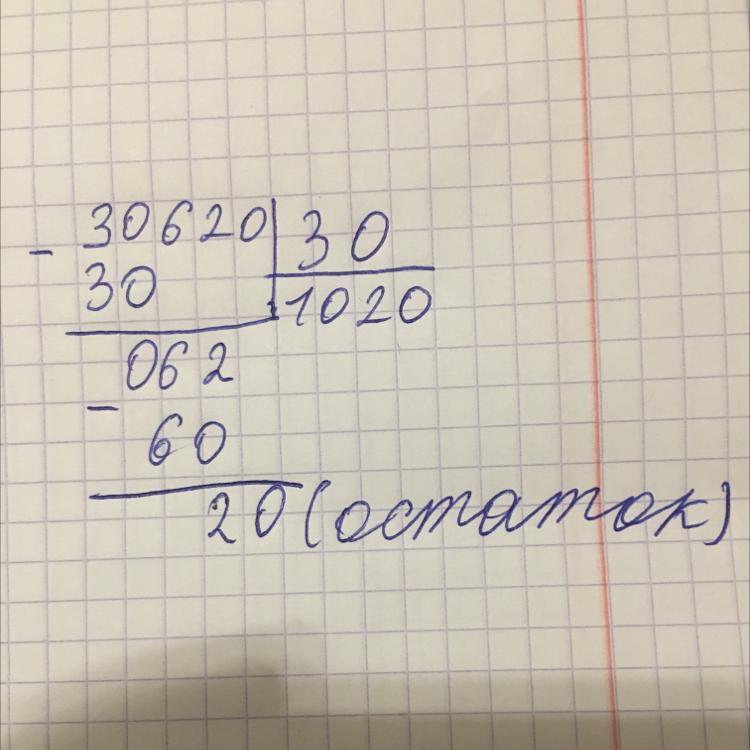 - 30620 | 30
30 1020
062
- 60
20 (остаток)